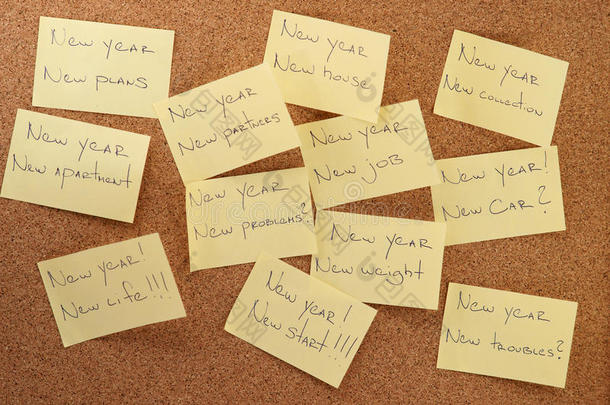 New year
New plans
New year
New house
New year
New collection
New year
New partners
New year
New apartment
New year
New job
New year!
New car?
New year
New problems?
New year
New weight
New year!
New life!!!
New year!
New start!!!
New year
New troubles?